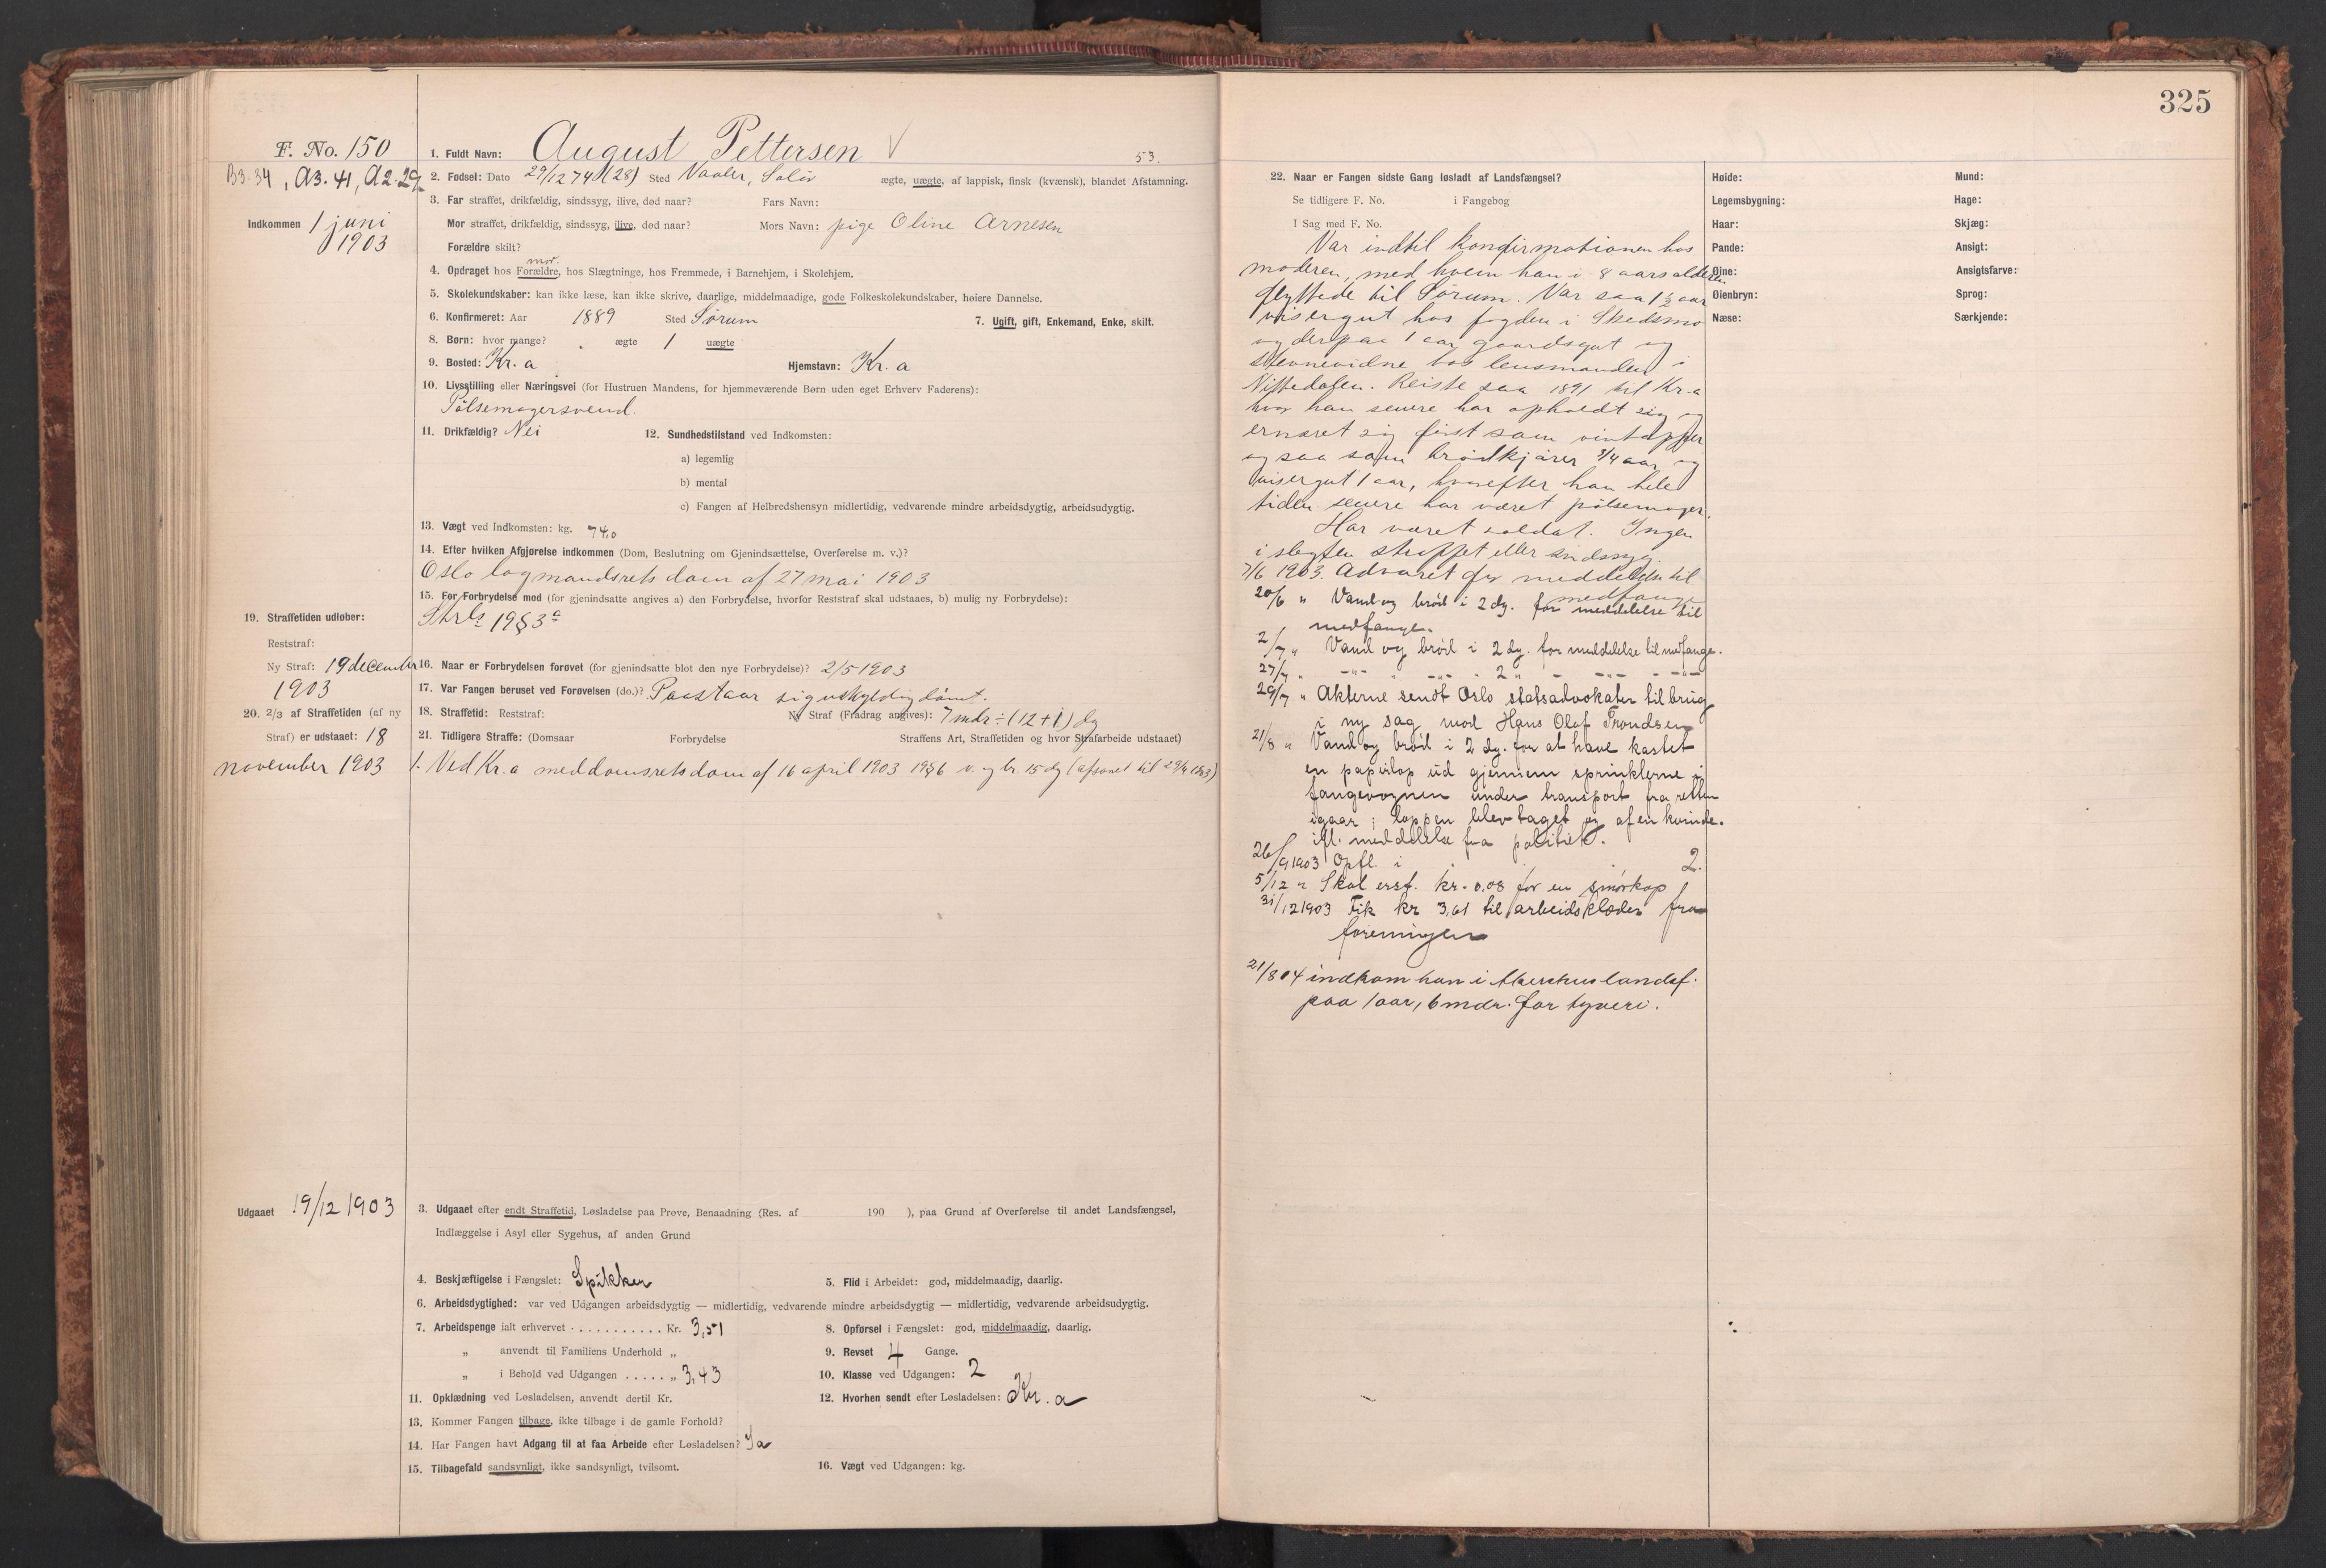 325
F. No. 150
B3.34, A3.41, A2.29
Indkommen 1 juni
1903
1. Fuldt Navn: August Pettersen V 53.
2. Fødsel: Dato 29/12 74 (28) Sted Vaaler, Solör ægte, uægte, af lappisk, finsk (kvænsk), blandet Afstamning.
3. Far straffet, drikfældig, sindssyg, ilive, død naar? Fars Navn:
Mor straffet, drikfældig, sindssyg, ilive, død naar? Mors Navn: pige Oline Arnesen
Forældre skilt?
mor.
4. Opdraget hos Forældre, hos Slægtninge, hos Fremmede, i Barnehjem, i Skolehjem.
5. Skolekundskaber: kan ikke læse, kan ikke skrive, daarlige, middelmaadige, gode Folkeskolekundskaber, høiere Dannelse.
6. Konfirmeret: Aar 1889 Sted Sörum 7. Ugift, gift, Enkemand, Enke, skilt.
8. Børn: hvor mange? . ægte 1 uægte
9. Bosted: Kr.a Hjemstavn: Kr.a
10. Livsstilling eller Næringsvei (for Hustruen Mandens, for hjemmeværende Børn uden eget Erhverv Faderens):
Pölsemagersvend.
11. Drikfældig? Nei 12. Sundhedstilstand ved Indkomsten:
a) legemlig
b) mental
c) Fangen af Helbredshensyn midlertidig, vedvarende mindre arbeidsdygtig, arbeidsudygtig.
13. Vægt ved Indkomsten: kg. 74,0
14. Efter hvilken Afgjørelse indkommen (Dom, Beslutning om Gjenindsættelse, Overførelse m. v.)?
Oslo lagmandsrets dom af 27 mai 1903
15. For Forbrydelse mod (for gjenindsatte angives a) den Forbrydelse, hvorfor Reststraf skal udstaaes, b) mulig ny Forbrydelse):
Strl: 19§3a
19. Straffetiden udløber:
Reststraf:
Ny Straf: 19 december
1903
16. Naar er Forbrydelsen forøvet (for gjenindsatte blot den nye Forbrydelse)? 2/5 1903
17. Var Fangen beruset ved Forøvelsen (do.)? Paastaar sig uskyldig dömt.
18. Straffetid: Reststraf: Ny Straf (Fradrag angives): 7 mdr ÷ (12+1) dg
20. 2/3 af Straffetiden (af ny
Straf) er udstaaet: 18
november 1903
21. Tidligere Straffe: (Domsaar Forbrydelse Straffens Art, Straffetiden og hvor Strafarbeide udstaaet)
1. Ved Kr.a meddomsrets dom af 16 april 1903 19§6 v. og br. 15 dg (afsonet til 29/4 1903)
Udgaaet 19/12 1903
3. Udgaaet efter endt Straffetid, Løsladelse paa Prøve, Benaadning (Res. af 190 ), paa Grund af Overførelse til andet Landsfængsel,
Indlæggelse i Asyl eller Sygehus, af anden Grund
4. Beskjæftigelse i Fængslet: Spikker 5. Flid i Arbeidet: god, middelmaadig, daarlig.
6. Arbeidsdygtighed: var ved Udgangen arbeidsdygtig — midlertidig, vedvarende mindre arbeidsdygtig — midlertidig, vedvarende arbeidsudygtig.
7. Arbeidspenge ialt erhvervet . . . . . . . . . . . Kr. 3,51 8. Opførsel i Fængslet: god, middelmaadig, daarlig.
„ anvendt til Familiens Underhold „ 9. Revset 4 Gange.
„ i Behold ved Udgangen . . . . . „ 3,43 10. Klasse ved Udgangen: 2
11. Opklædning ved Løsladelsen, anvendt dertil Kr. 12. Hvorhen sendt efter Løsladelsen: Kr. a
13. Kommer Fangen tilbage, ikke tilbage i de gamle Forhold?
14. Har Fangen havt Adgang til at faa Arbeide efter Løsladelsen? Ja
15. Tilbagefald sandsynligt, ikke sandsynligt, tvilsomt. 16. Vægt ved Udgangen: kg.
22. Naar er Fangen sidste Gang løsladt af Landsfængsel?
Se tidligere F. No. i Fangebog
I Sag med F. No.
Var indtil konfirmationen hos
moderen, med hvem han i 8 aarsalderen
flyttede til Sörum. Var saa 1½ aar
visergut hos fogden i Skedsmo
og derpaa 1 aar gaardsgut og
stevnevidne hos lensmanden i
Nittedalen. Reiste saa 1891 til Kr.a
hvor han senere har opholdt sig og
ernæret sig först som vintapper
og saa som brödkjörer 3/4 aar og
visergut 1 aar, hvorefter han hele
tiden senere har været pölsemager.
Har været soldat. Ingen
i slegten straffet eller sindssyg.
7/6 1903. Advaret for meddelelse til
medfange
20/6 " Vand og bröd i 2 dg. for meddelelse til
medfange.
2/7 " Vand og bröd i 2 dg. for meddelelse til medfange.
27/7 " -"- -"- 2 " - -"- - -"-
29/7 " Akterne sendt Oslo statsadvokater til brug
i ny sag mod Hans Olaf Trondsen
21/8 " Vand og bröd i 2 dg. for at have kastet
en papirlap ud gjennem sprinklerne i
fangevognen under transport fra retten
igaar; lappen blev taget op af en kvinde.
ifl. meddelelse fra politiet.
26/9 1903 Opfl. i 2.
5/12 " Skal erst. kr. 0,08 for en smörkop
31/12 1903 Fik kr 3,61 til arbeidsklæder fra
foreningen
21/8 04 indkom han i Akershus landsf.
paa 1 aar, 6 mdr. for tyveri.
Høide: Mund:
Legemsbygning: Hage:
Haar: Skjæg:
Pande: Ansigt:
Øine: Ansigtsfarve:
Øienbryn: Sprog:
Næse: Særkjende: